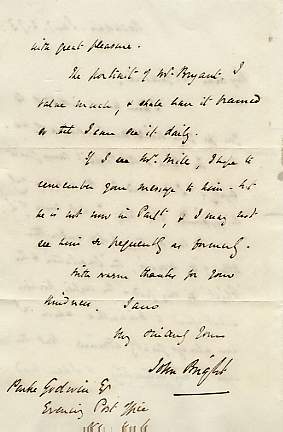 with great pleasure.
The portrait of Mr. Bryant, I
value much, & shall have it framed
so that I can see it daily.
If I see Mr. Mill, I hope to
remember your message to him - but
he is not now in Parlt, & I may not
see him so frequently as formerly.
With warm thanks for your
kindness. I am
Very sincerely Yours
John Bright
Parke Godwin Esq
Evening Post Office